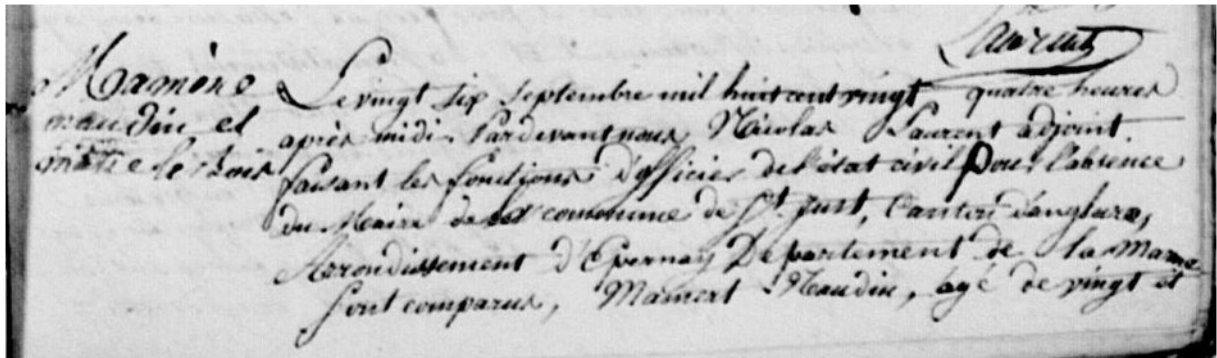 Laurent
Mamère
naudin et
marie le Bois
Le vingt six septembre mil huit cent vingt quatre heures
après midi. Pardevant nous Nicolas Laurent adjoint.
faisant les fonctions d'officier de l'état civil pour l'absence
du Maire de la commune de St. Just, Canton d'anglure,
Arondissement d'Epernay Departement de la Marne
sont comparus, Mamert Naudin, agé de vingt et